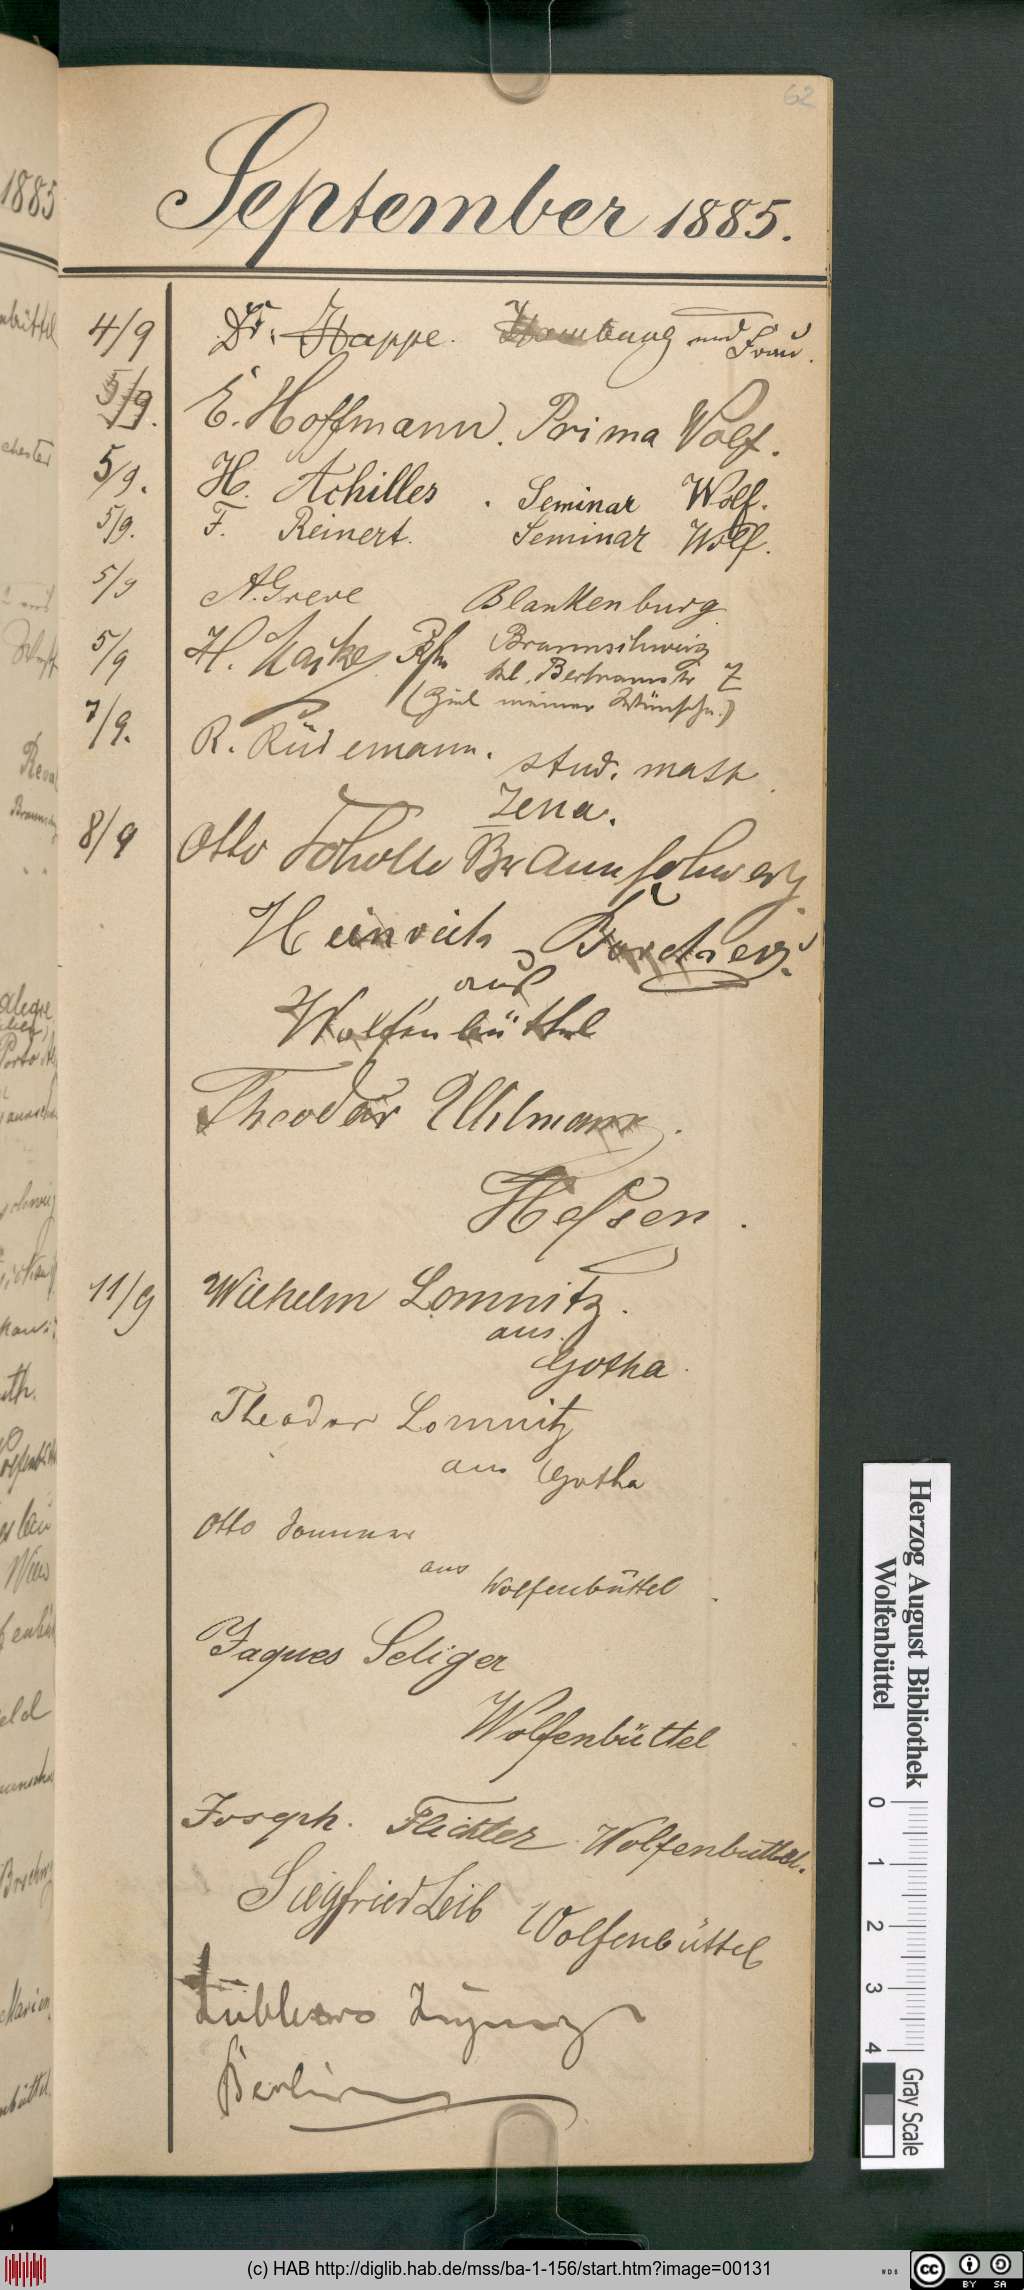 62
September 1885.
4/9 Dr. Happe. Hamburg und Frau.
5/9. E. Hoffmann. Prima Wolf.
5/9. H. Achilles. Seminar Wolf.
5/9. F. Reinert. Seminar Wolf.
5/9 A. Greve Blankenburg
5/9 H. Braunschweig
kl. Bertramstr 7
(Ziel meiner Wünsche.)
7/9. R. Rüdemann. stud. math.
Jena.
8/9 Otto Scholle Braunschweig
Heinrich
aus
Wolfenbüttel
Theodor Uhlmann.
Hessen.
11/9 Wilhelm Lomnitz.
aus
Gotha.
Theodor Lomnitz
aus Gotha
Otto
aus Wolfenbüttel
Jaques Seliger
Wolfenbüttel
Joseph. Flickter Wolfenbuttel.
Siegfried Leib Wolfenbüttel
Berlin
1885
Herzog August Bibliothek
Wolfenbüttel
0 1 2 3 4
Gray Scale
(c) HAB http://diglib.hab.de/mss/ba-1-156/start.htm?image=00131
WDB
cc BY SA